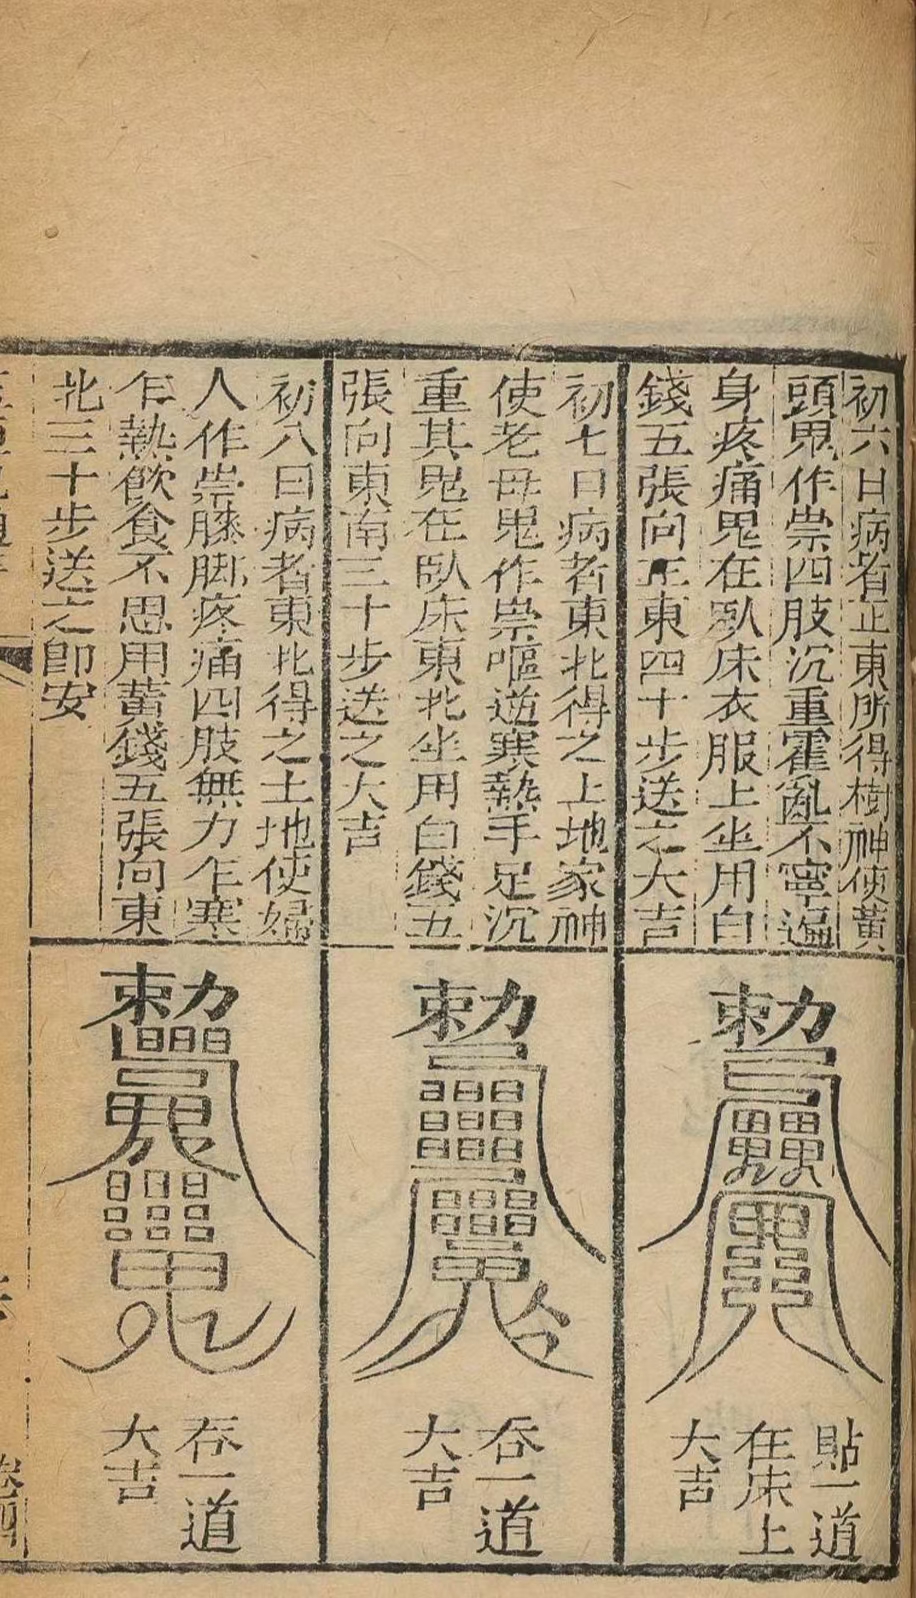 初六日病者正東所得樹神使黄
頭鬼作祟四肢沉重霍亂不寧遍
身疼痛鬼在臥床衣服上坐用白
錢五張向正東四十步送之大吉
貼一道
在床上
大吉
初七日病者東北得之土地家神
使老母鬼作祟嘔逆寒熱手足沉
重其鬼在臥床東北坐用白錢五
張向東南三十步送之大吉
吞一道
大吉
初八日病者東北得之土地使婦
人作祟膝脚疼痛四肢無力乍寒
乍熱飲食不思用黄錢五張向東
北三十步送之即安
吞一道
大吉